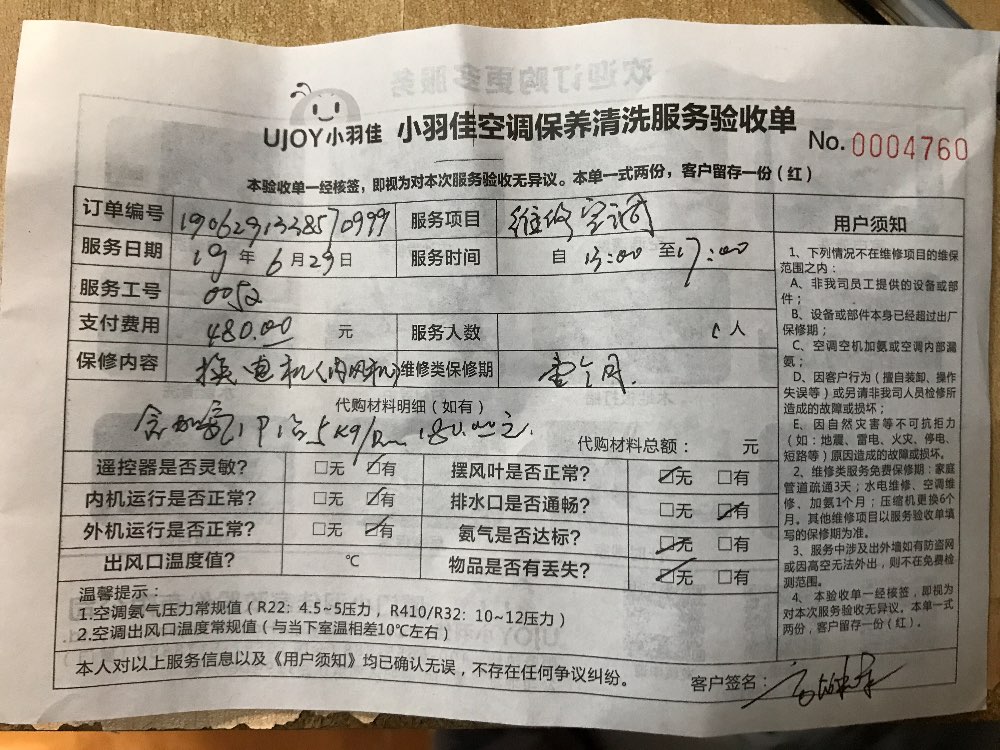 UJOY小羽佳 小羽佳空调保养清洗服务验收单 No.0004760
本验收单一经核签，即视为对本次服务验收无异议。本单一式两份，客户留存一份（红）
订单编号 1906291338570999 服务项目 维修空调
服务日期 19年6月29日 服务时间 自 13:00 至17:00
服务工号 0052
支付费用 480.00 元 服务人数 人
保修内容 换电机(内风机) 维修类保修期 壹个月.
代购材料明细（如有）
代购材料总额： 元
遥控器是否灵敏？ □无 ☑有 摆风叶是否正常？ ☑无 □有
内机运行是否正常？ □无 ☑有 排水口是否通畅？ □无 ☑有
外机运行是否正常？ □无 ☑有 氨气是否达标？ ☑无 □有
出风口温度值？ ℃ 物品是否有丢失？ ☑无 □有
温馨提示：
1.空调氨气压力常规值（R22：4.5~5压力，R410/R32：10~12压力）
2.空调出风口温度常规值（与当下室温相差10℃左右）
本人对以上服务信息以及《用户须知》均已确认无误，不存在任何争议纠纷。
客户签名：
用户须知
1、下列情况不在维修项目的维保
范围之内：
A、非我司员工提供的设备或部
件；
B、设备或部件本身已经超过出厂
保修期；
C、空调空机加氨或空调内部漏
氨；
D、因客户行为（擅自装卸、操作
失误等）或另请非我司人员检修所
造成的故障或损坏；
E、因自然灾害等不可抗拒力
（如：地震、雷电、火灾、停电、
短路等）原因造成的故障或损坏。
2、维修类服务免费保修期：家庭
管道疏通3天；水电维修、空调维
修、加氨1个月；压缩机更换6个
月。其他维修项目以服务验收单填
写的保修期为准。
3、服务中涉及出外墙如有防盗网
或因高空无法外出，则不在免费检
测范围。
4、本验收单一经核签，即视为
对本次服务验收无异议。本单一式
两份，客户留存一份（红）。